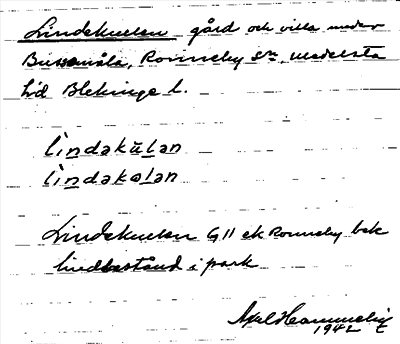 Lindekullen gård och villa under
Bussemåla, Ronneby sn, Medelsta
hd Blekinge l.
lindakulan
lindakolan
Lindekullen G11 ek Ronneby bek
lindbestånd i park
1942